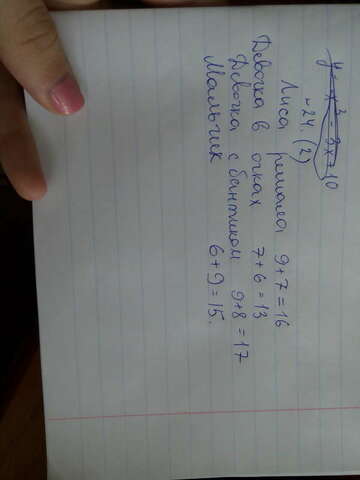 y = x² - 3x + 10
~24. (2)
Лиса решала 9+7=16
Девочка в очках 7+6=13
Девочка с бантиком 9+8=17
Мальчик 6+9=15.